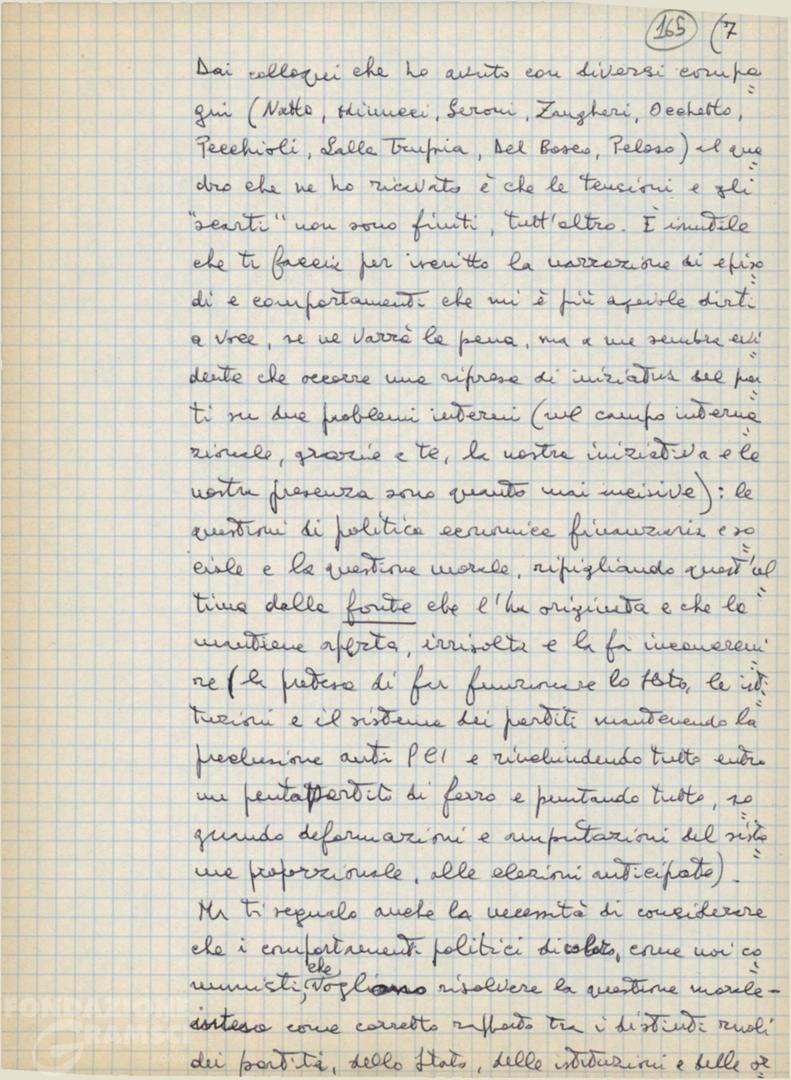 165 (7
Dai colloqui che ho avuto con diversi compa=
gni (Natta, Minucci, Seroni, Zangheri, Occhetto,
Pecchioli, Lalla Trupia, Del Bosco, Peloso) il qua=
dro che ne ho ricavato è che le tensioni e gli
"scarti" non sono finiti, tutt'altro. È inutile
che ti faccia per iscritto la narrazione di episo=
di e comportamenti che mi è più agevole dirti
a voce, se ne varrà la pena, ma a me sembra evi=
dente che occorre una ripresa di iniziativa del par=
ti su due problemi interni (nel campo interna=
zionale, grazie a te, la nostra iniziativa e la
nostra presenza sono quanto mai incisive): le
questioni di politica economica finanziaria e so=
ciale e la questione morale, ripigliando quest'ul=
tima dalla fonte che l'ha originata e che la
mantiene aperta, irrisolta e la fa incancreni=
re (la pretesa di far funzionare lo Stato, le isti=
tuzioni e il sistema dei partiti mantenendo la
preclusione anti PCI e rinchiudendo tutto entro
un pentapartito di ferro e puntando tutto, se=
guendo deformazioni e amputazioni del siste=
ma proporzionale, alle elezioni anticipate).
Ma ti segnalo anche la necessità di considerare
che i comportamenti politici di coloro, come noi co=
munisti, che vogliono risolvere la questione morale -
intesa come corretto rapporto tra i distinti ruoli
dei partiti, dello Stato, delle istituzioni e delle or=
FONDAZIONE
GRAMSCI